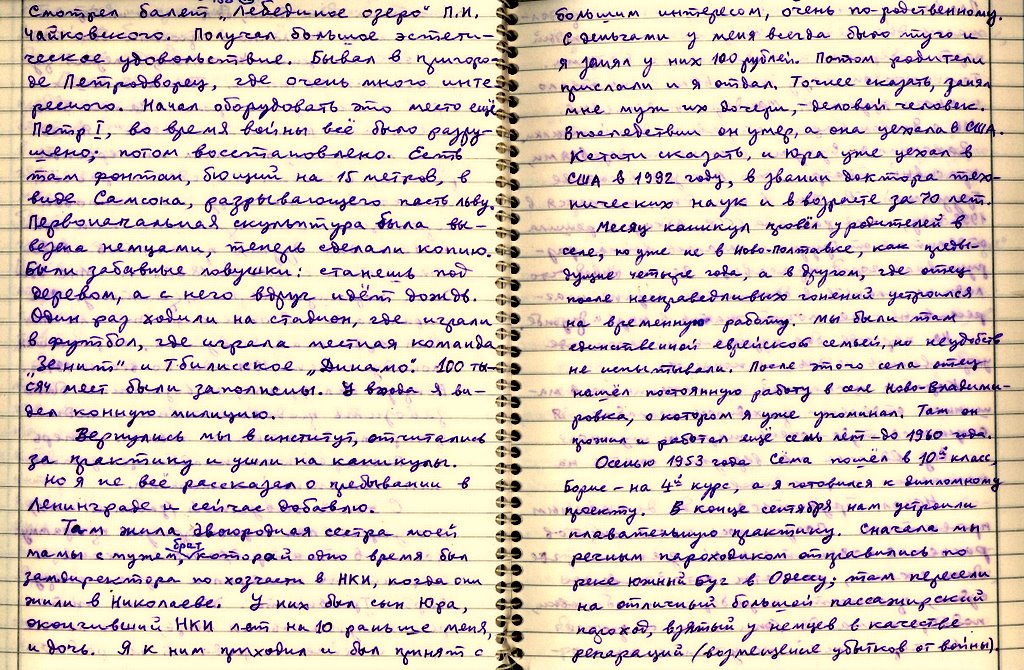 смотрел балет „Лебединое озеро" П.И.
Чайковского. Получал большое эстети-
ческое удовольствие. Бывал в пригоро-
де Петродворец, где очень много инте-
ресного. Начал оборудовать это место ещё
Петр I, во время войны всё было разру-
шено; потом восстановлено. Есть
там фонтан, бьющий на 15 метров, в
виде Самсона, разрывающего пасть льву.
Первоначальная скульптура была вы-
везена немцами, теперь сделали копию.
Были забавные ловушки: станешь под
деревом, а с него вдруг идёт дождь.
Один раз ходили на стадион, где играли
в футбол, где играла местная команда
„Зенит" и Тбилисское „Динамо". 100 ты-
сяч мест были заполнены. У входа я ви-
дел конную милицию.
Вернулись мы в институт, отчитались
за практику и ушли на каникулы.
Но я не всё рассказал о пребывании в
Ленинграде и сейчас добавлю.
Там жила двоюродная сестра моей
мамы с мужем, брат которой одно время был
замдиректора по хозчасти в НКИ, когда они
жили в Николаеве. У них был сын Юра,
окончивший НКИ лет на 10 раньше меня,
и дочь. Я к ним приходил и был принят с
большим интересом, очень по-родственному.
С деньгами у меня всегда было туго и
я занял у них 100 рублей. Потом родители
прислали и я отдал. Точнее сказать, занял
мне муж их дочери, - деловой человек.
Впоследствии он умер, а она уехала в США.
Кстати сказать, и Юра уже уехал в
США в 1992 году, в звании доктора тех-
нических наук и в возрасте за 70 лет.
Месяц каникул провёл у родителей в
селе, но уже не в Ново-Полтавке, как преды-
дущие четыре года, а в другом, где отец
после несправедливых гонений устроился
на временную работу. Мы были там
единственной еврейской семьёй, но неудобств
не испытывали. После этого села отец
нашёл постоянную работу в селе Ново-Владими-
ровка, о котором я уже упоминал. Там он
прожил и работал ещё семь лет - до 1960 года.
Осенью 1953 года Сёма пошёл в 10й класс,
Борис - на 4й курс, а я готовился к дипломному
проекту. В конце сентября нам устроили
плавательную практику. Сначала мы
речным пароходиком отправились по
реке Южный Буг в Одессу; там пересели
на отличный большой пассажирский
пароход, взятый у немцев в качестве
репараций (возмещение убытков от войны).